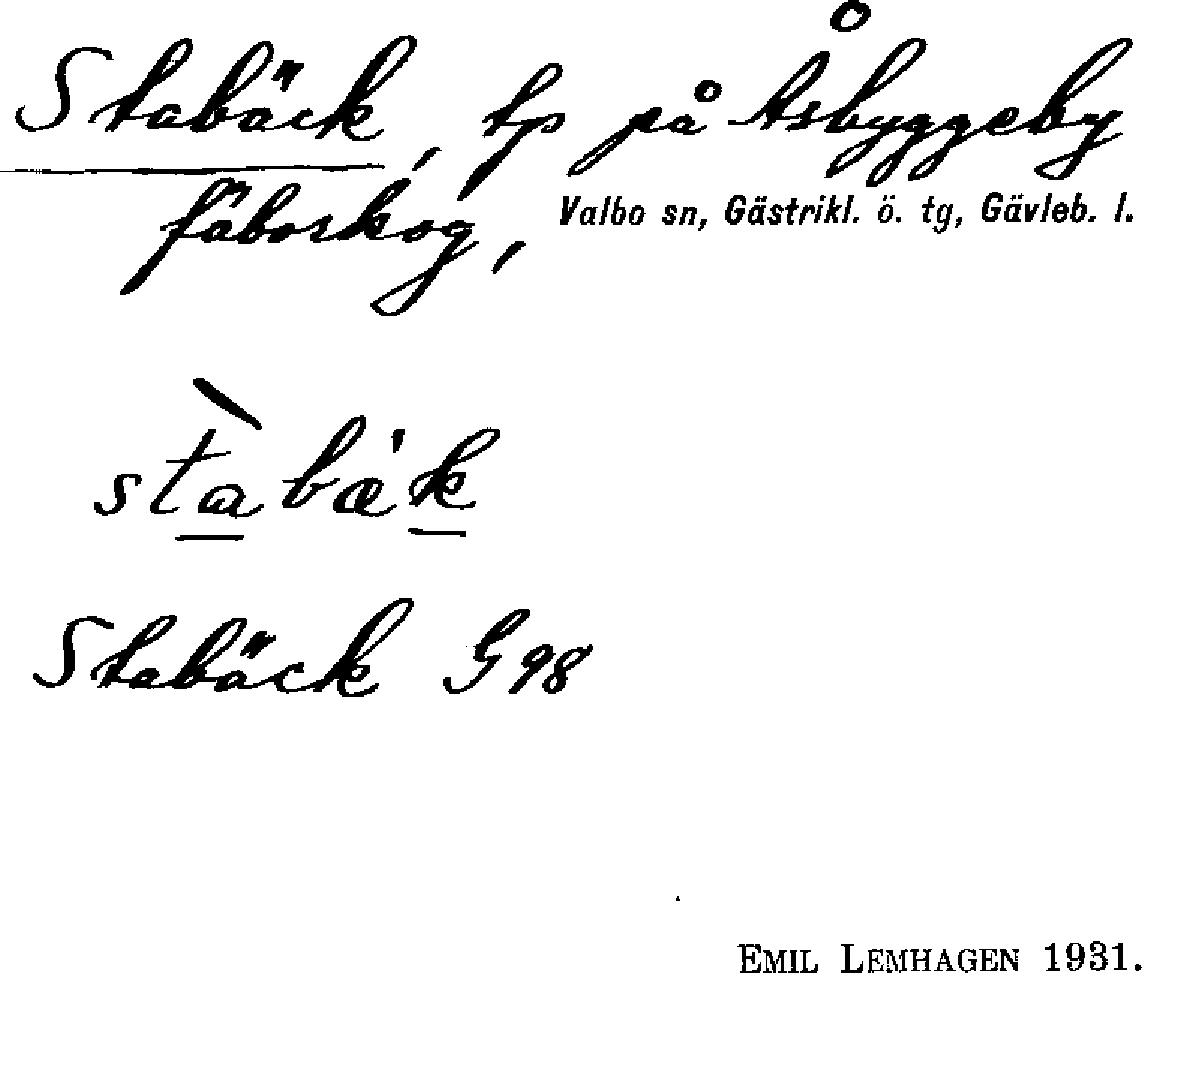 Stabäck, tp på Åsbyggeby
fäboskog, Valbo sn, Gästrikl. ö. tg, Gävleb. l.
stabæk
Stabäck G 98
EMIL LEMHAGEN 1931.